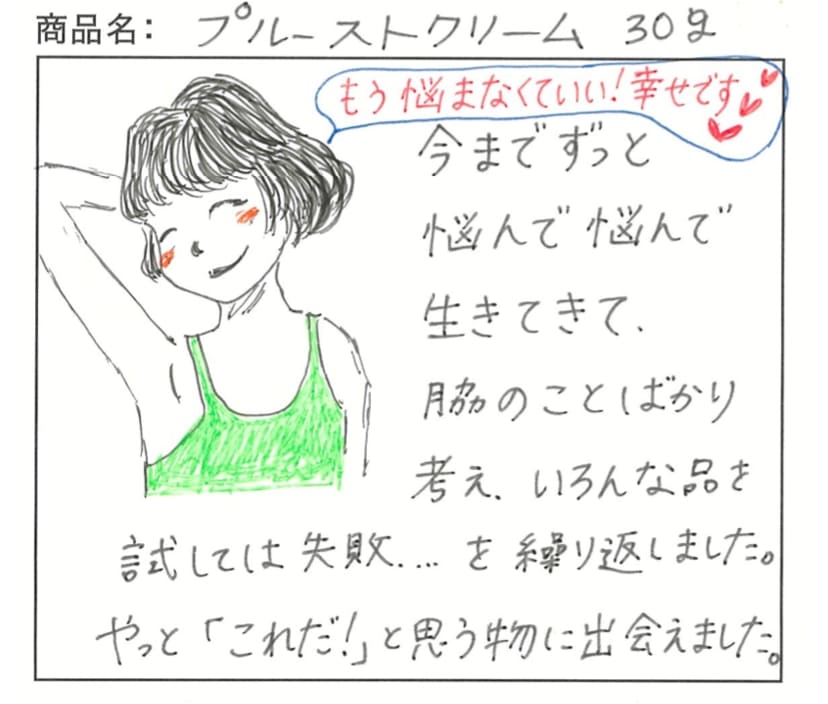 商品名: プルーストクリーム 30g
もう悩まなくていい!幸せです
今までずっと
悩んで悩んで
生きてきて、
脇のことばかり
考え、いろんな品を
試しては失敗....を繰り返しました。
やっと「これだ!」と思う物に出会えました。